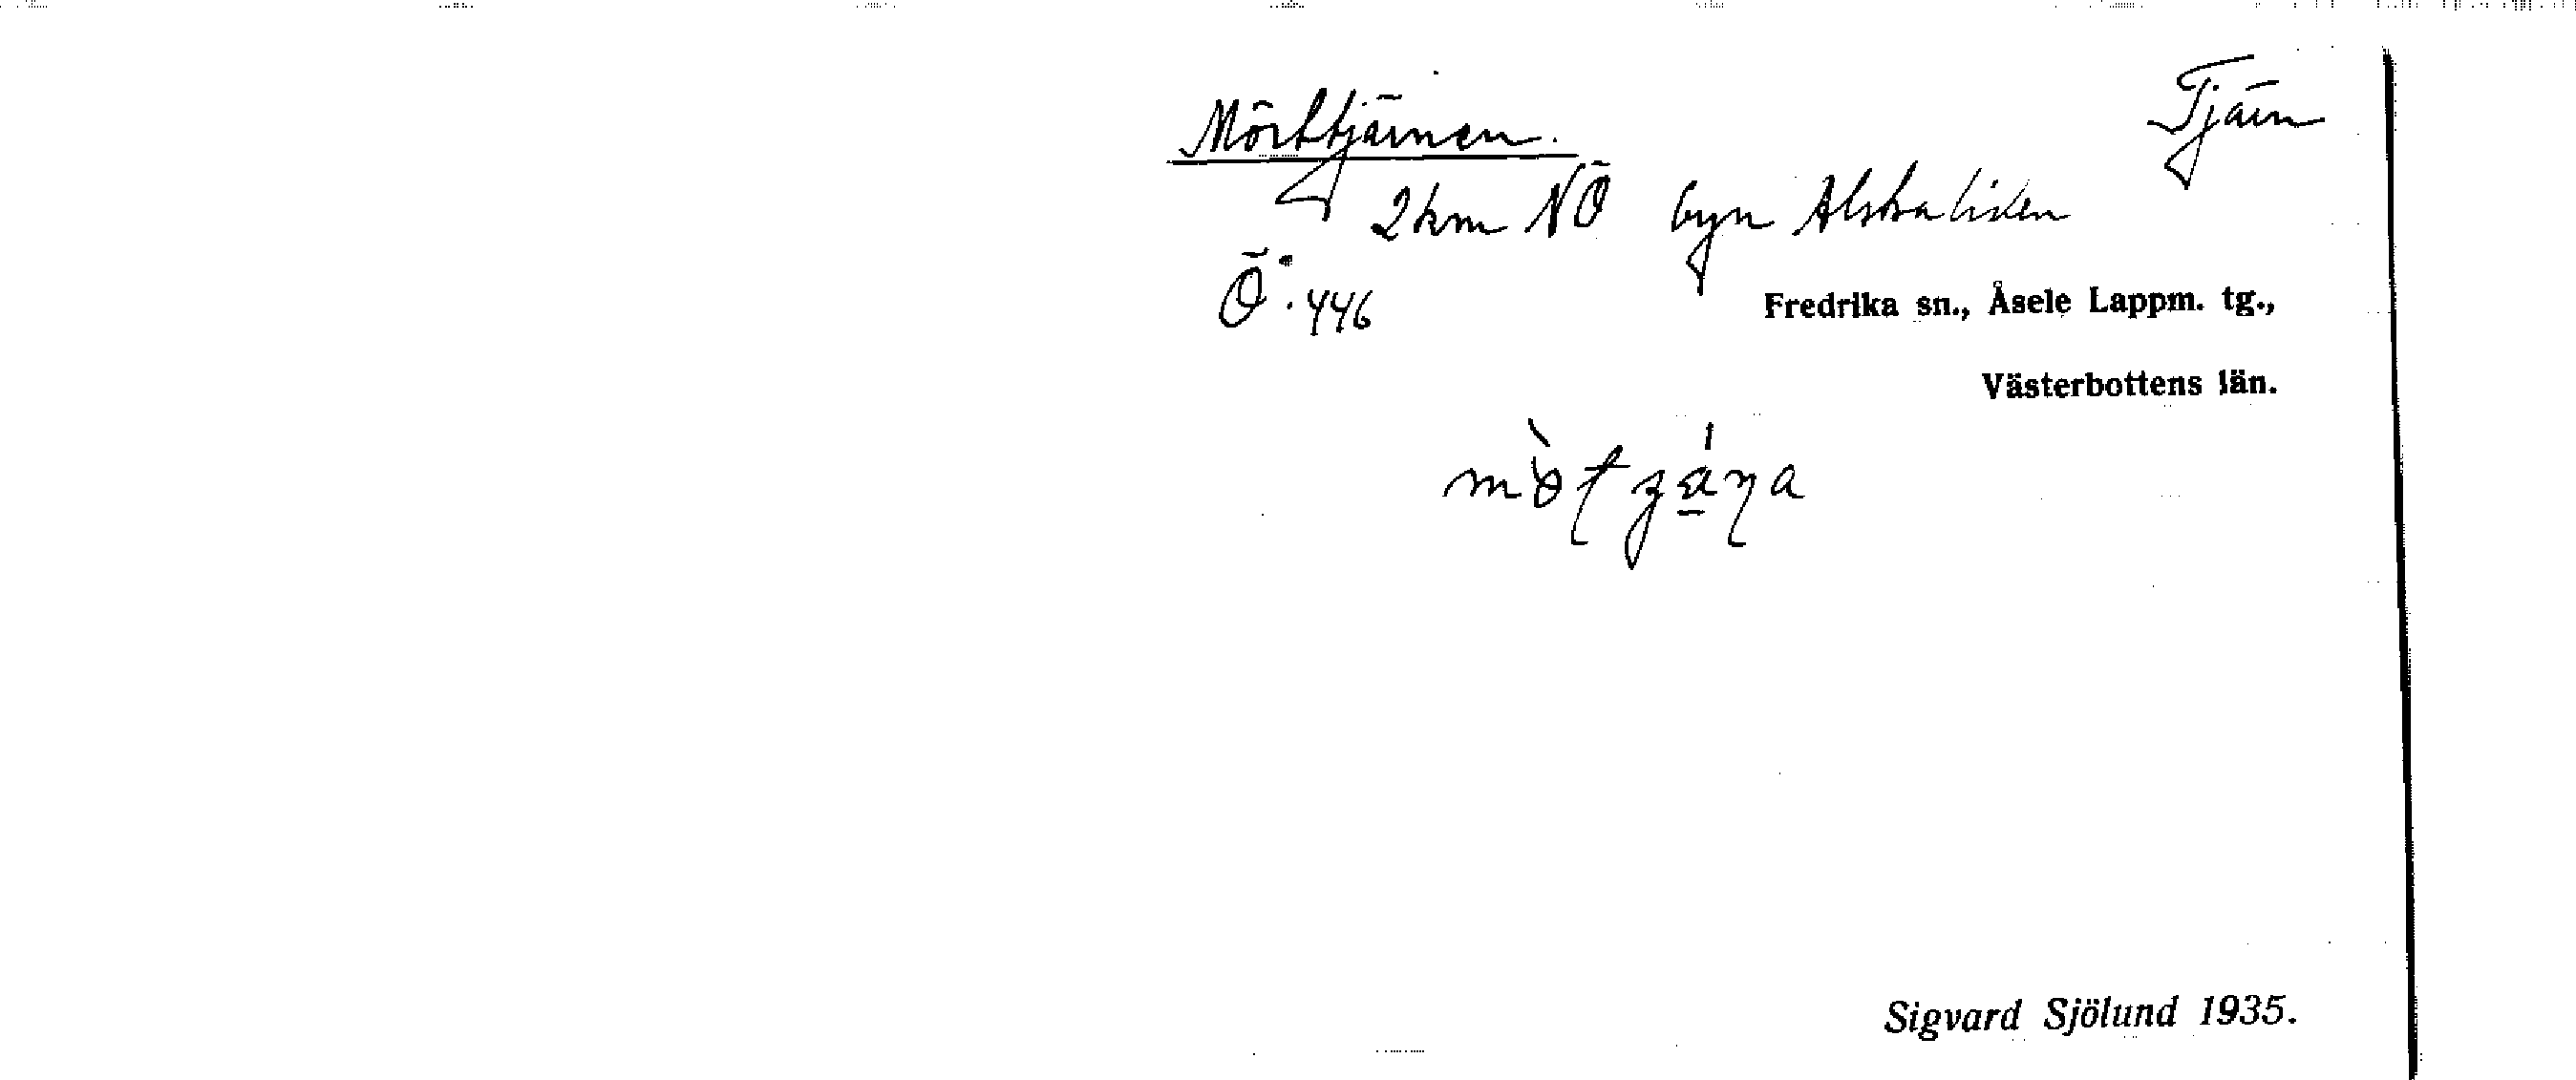 Mörttjärnen.
Tjärn
2 km NÖ byn Alskaliden
Ö. 446
Fredrika sn., Åsele Lappm. tg.,
Västerbottens län.
Sigvard Sjölund 1935.